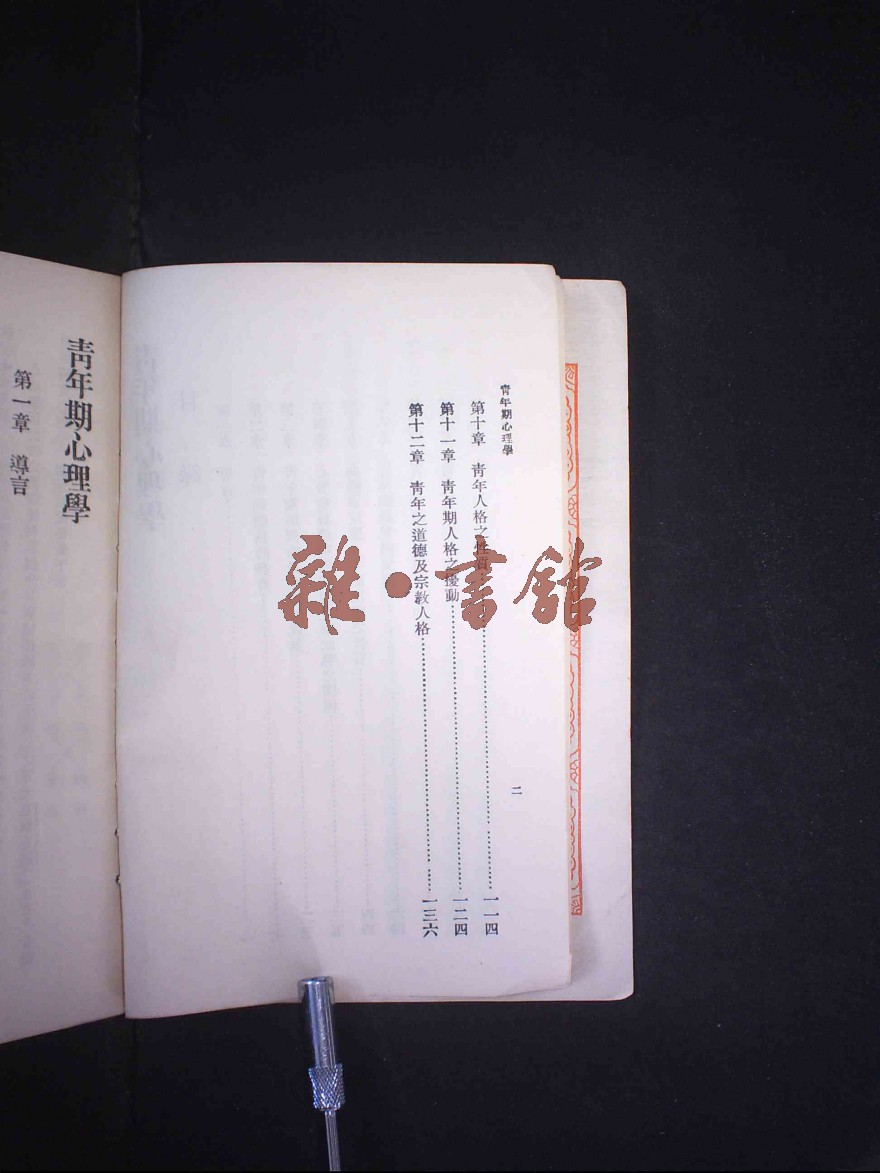 青年期心理學
第十章 青年人格之性質 一一四
第十一章 青年期人格之擾動 一二四
第十二章 青年之道德及宗教人格 一三六
二
青年期心理學
第一章 導言
雜·書館